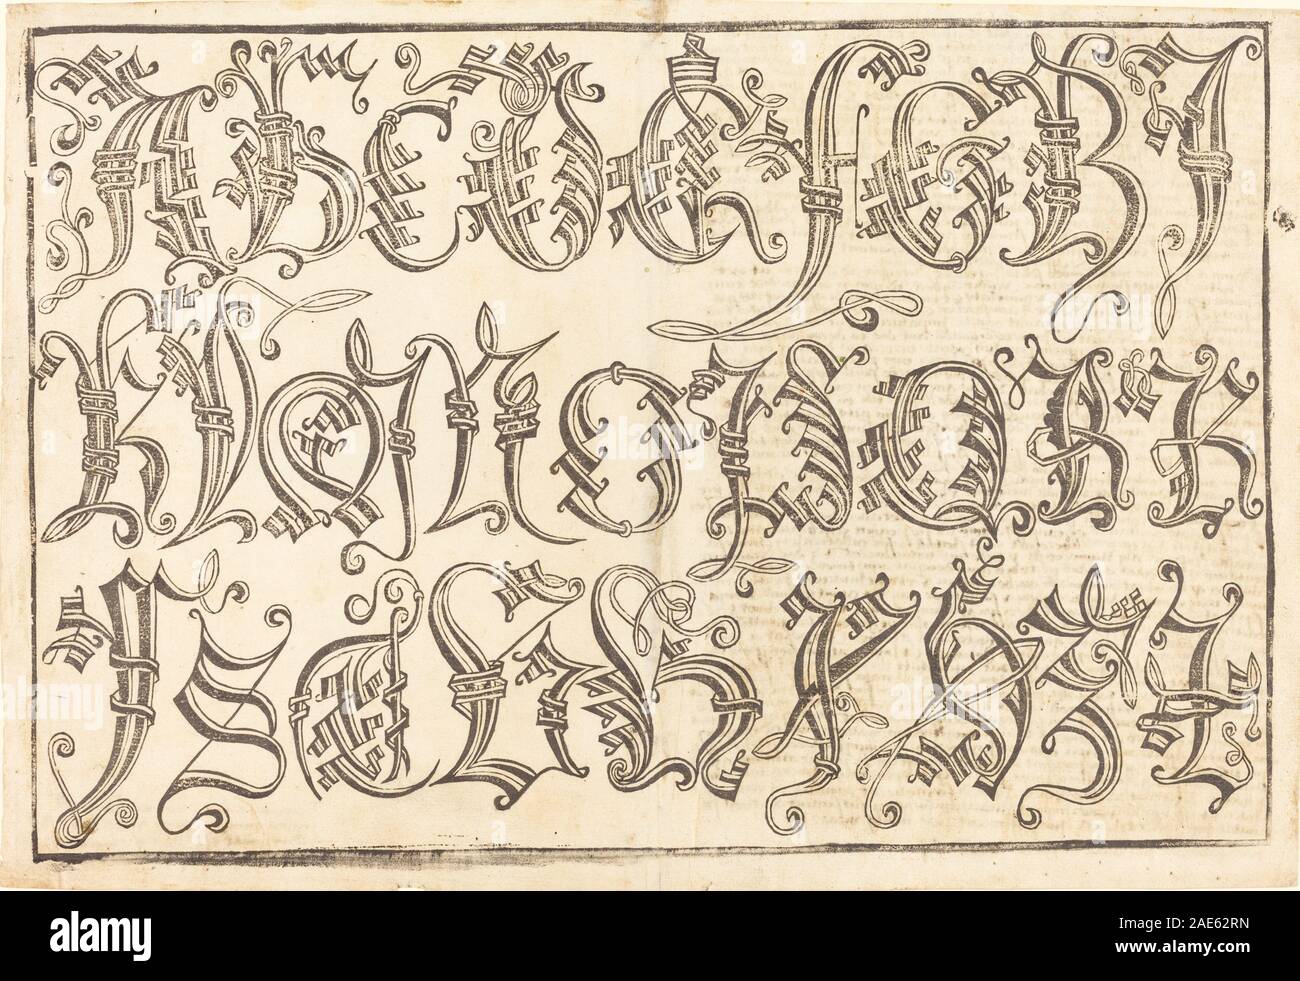 A B C D E F G H I
K L M N O P Q R R
S T V X Y Z
alamy
Image ID: 2AE62RN
www.alamy.com